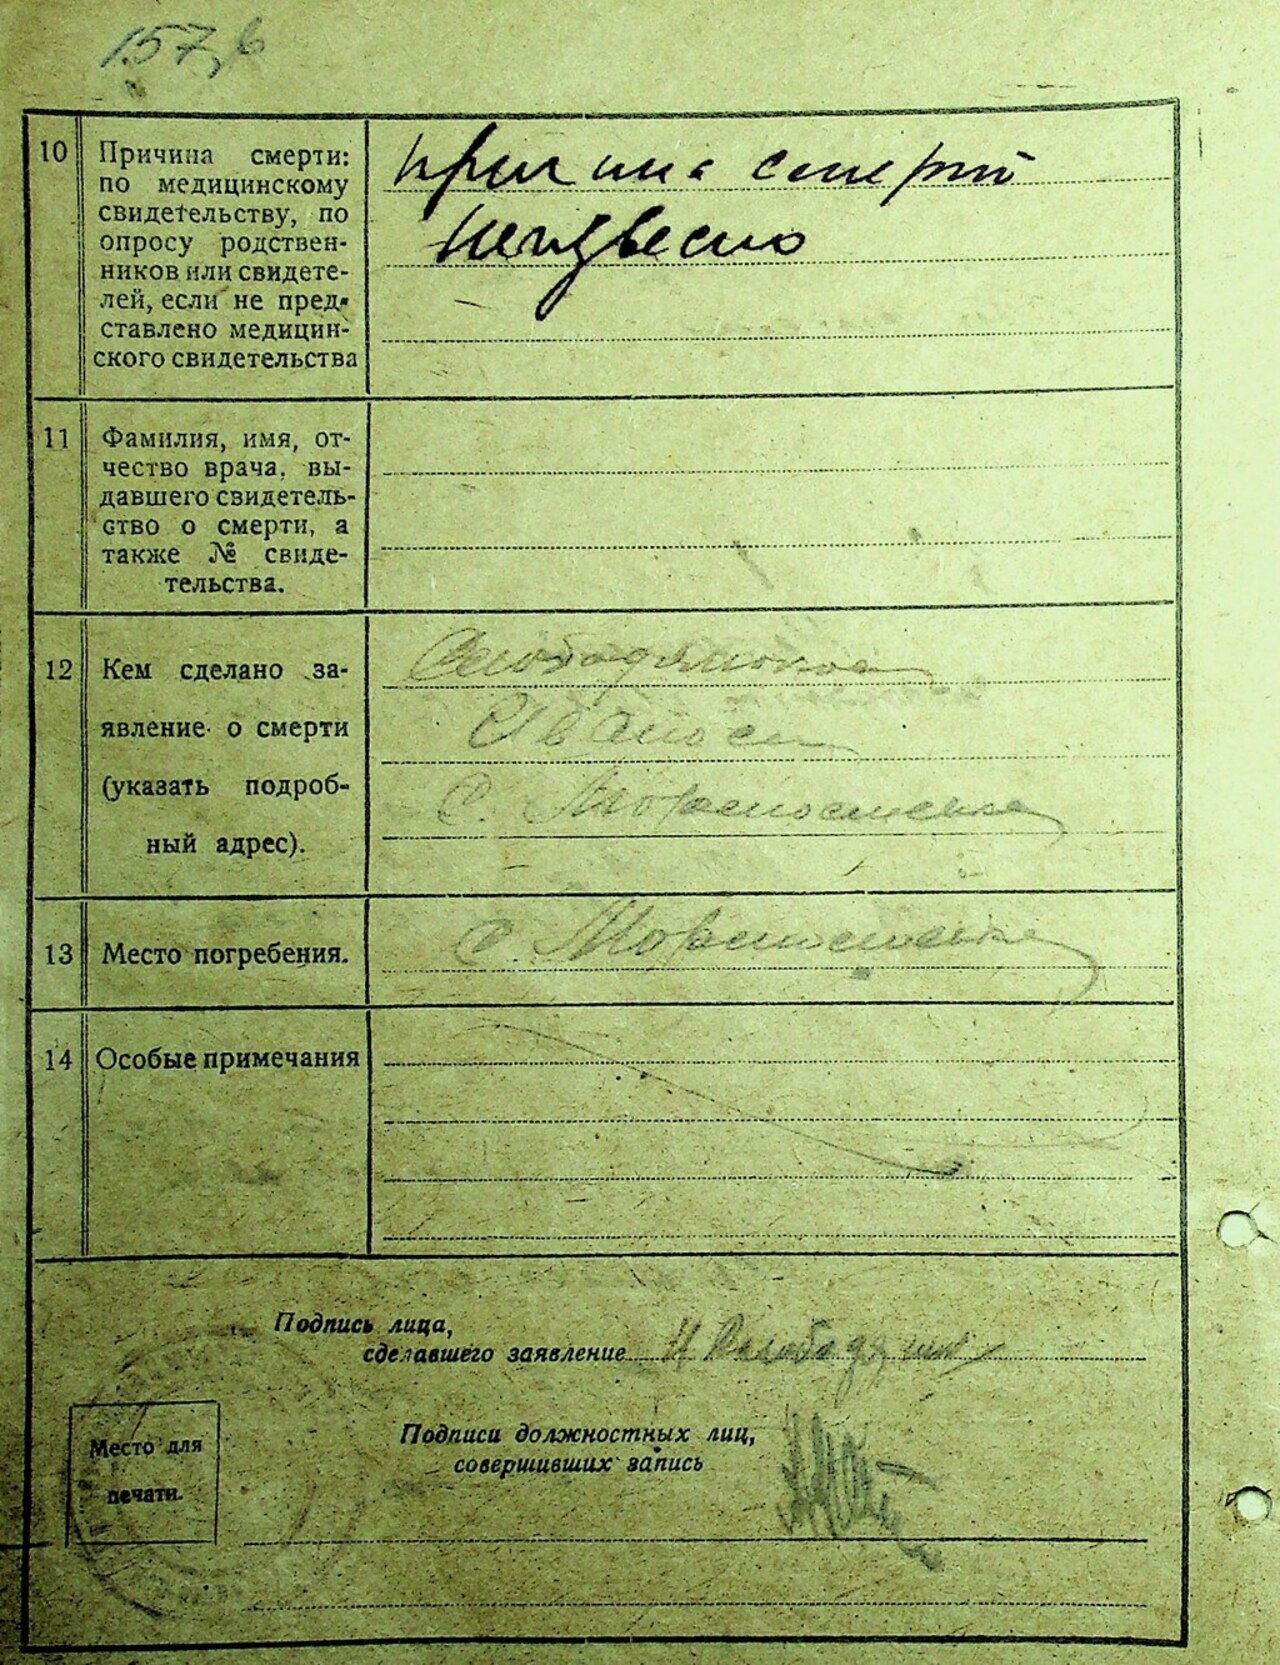 157,в
10 Причина смерти:
по медицинскому
свидетельству, по
опросу родствен-
ников или свидете-
лей, если не пред-
ставлено медицин-
ского свидетельства
причина смерти
неизвесно
11 Фамилия, имя, от-
чество врача, вы-
давшего свидетель-
ство о смерти, а
также № свиде-
тельства.
12 Кем сделано за-
явление о смерти
(указать подроб-
ный адрес).
с.
13 Место погребения.
с.
14 Особые примечания
Подпись лица,
сделавшего заявление
Подписи должностных лиц,
совершивших запись
Место для
печати.